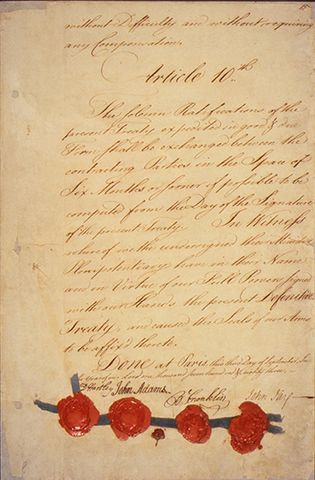 without Difficulty and without requiring
any Compensation.
Article 10th.
The solemn Ratifications of the
present Treaty expedited in good & due
Form shall be exchanged between the
contracting Parties in the Space of
Six Months or sooner if possible to be
computed from the Day of the Signature
of the present Treaty. In Witness
whereof we the undersigned their Ministers
Plenipotentiary have in their Name
and in Virtue of our Full Powers signed
with our Hands the present Definitive
Treaty, and caused the Seals of our Arms
to be affix'd thereto.
Done at Paris, this third Day of September, In
the Year of our Lord one thousand seven hundred & eighty three.
D Hartley John Adams B Franklin John Jay